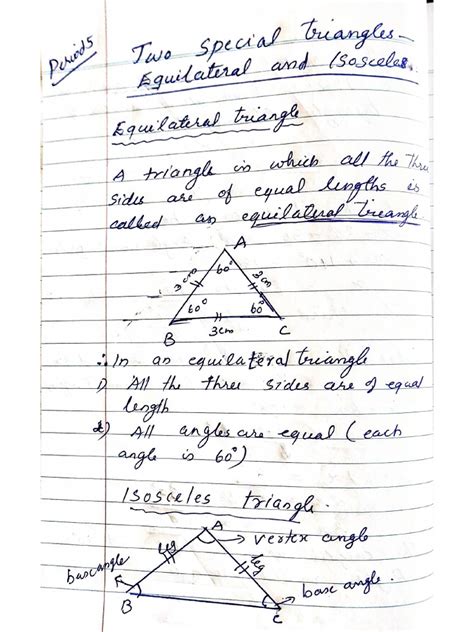 Period 5
Two special triangles -
Equilateral and Isosceles.
Equilateral triangle
A triangle in which all the three
sides are of equal lengths is
called an equilateral treangle
A
60°
3cm
3cm
60°
60°
B
3cm
C
∴ In an equilateral triangle
1) All the three sides are of equal
length
2) All angles are equal (each
angle is 60°)
Isosceles triangle.
A
vertex angle
leg
leg
base angle
base angle.
B
C